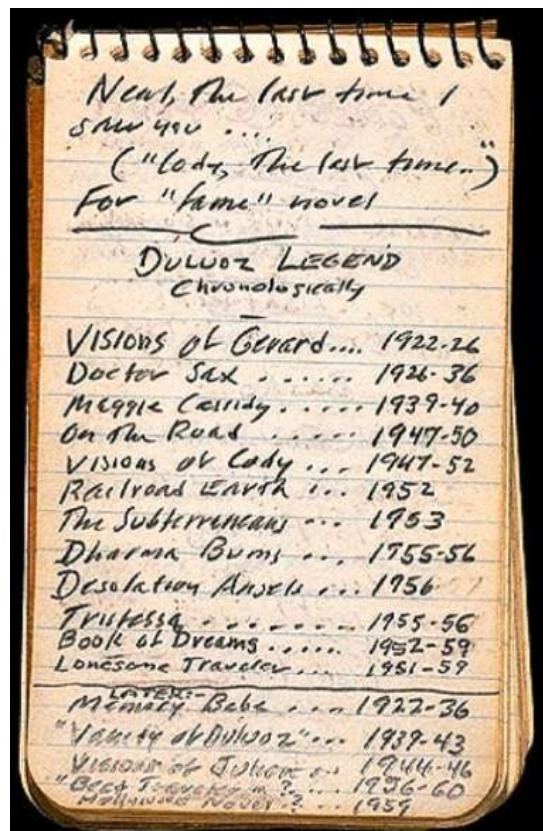 Neal, the last time I
saw you ....
("Cody, the last time..")
For "fame" novel
DULUOZ LEGEND
Chronologically
Visions of Gerard.... 1922-26
Doctor Sax ...... 1926-36
Maggie Cassidy ..... 1939-40
On the Road ...... 1947-50
Visions of Cody ... 1947-52
Railroad Earth ... 1952
The Subterraneans ... 1953
Dharma Bums ... 1955-56
Desolation Angels ... 1956
Tristessa ........ 1955-56
Book of Dreams ..... 1952-59
Lonesome Traveler... 1951-59
LATER:-
Memory Babe ... 1922-36
"Vanity of Duluoz"... 1939-43
Visions of Julien ... 1944-46
"Beat Traveler"? ... 1956-60
Hollywood Novel? ... 1959